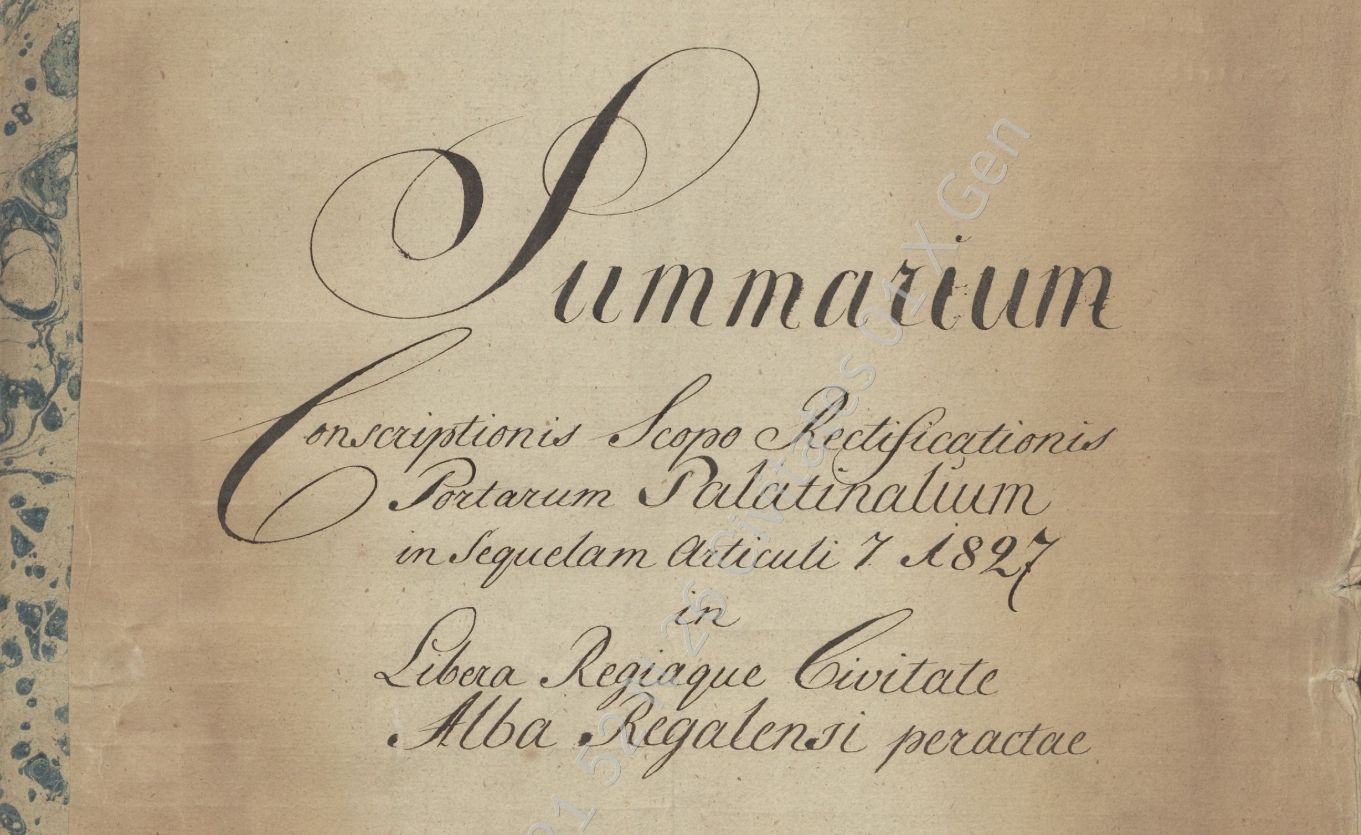 Summarium
Conscriptionis Scopo Rectificationis
Portarum Palatinalium
in Sequelam Articuli 7. 1827
in
Libera Regiaque Civitate
Alba Regalensi peractae